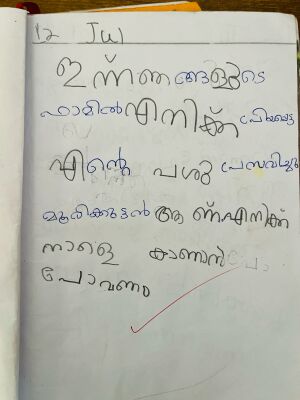 12 Jul
ഇന്ന് ഞങ്ങളുടെ
ഫാമിൽ എനിക്ക് പ്രിയപ്പെട്ട
എന്റെ പശു പ്രസവിച്ചു
മൂരിക്കുട്ടൻ ആണ് എനിക്ക്
നാളെ കാണാൻ പോ
പോവണം